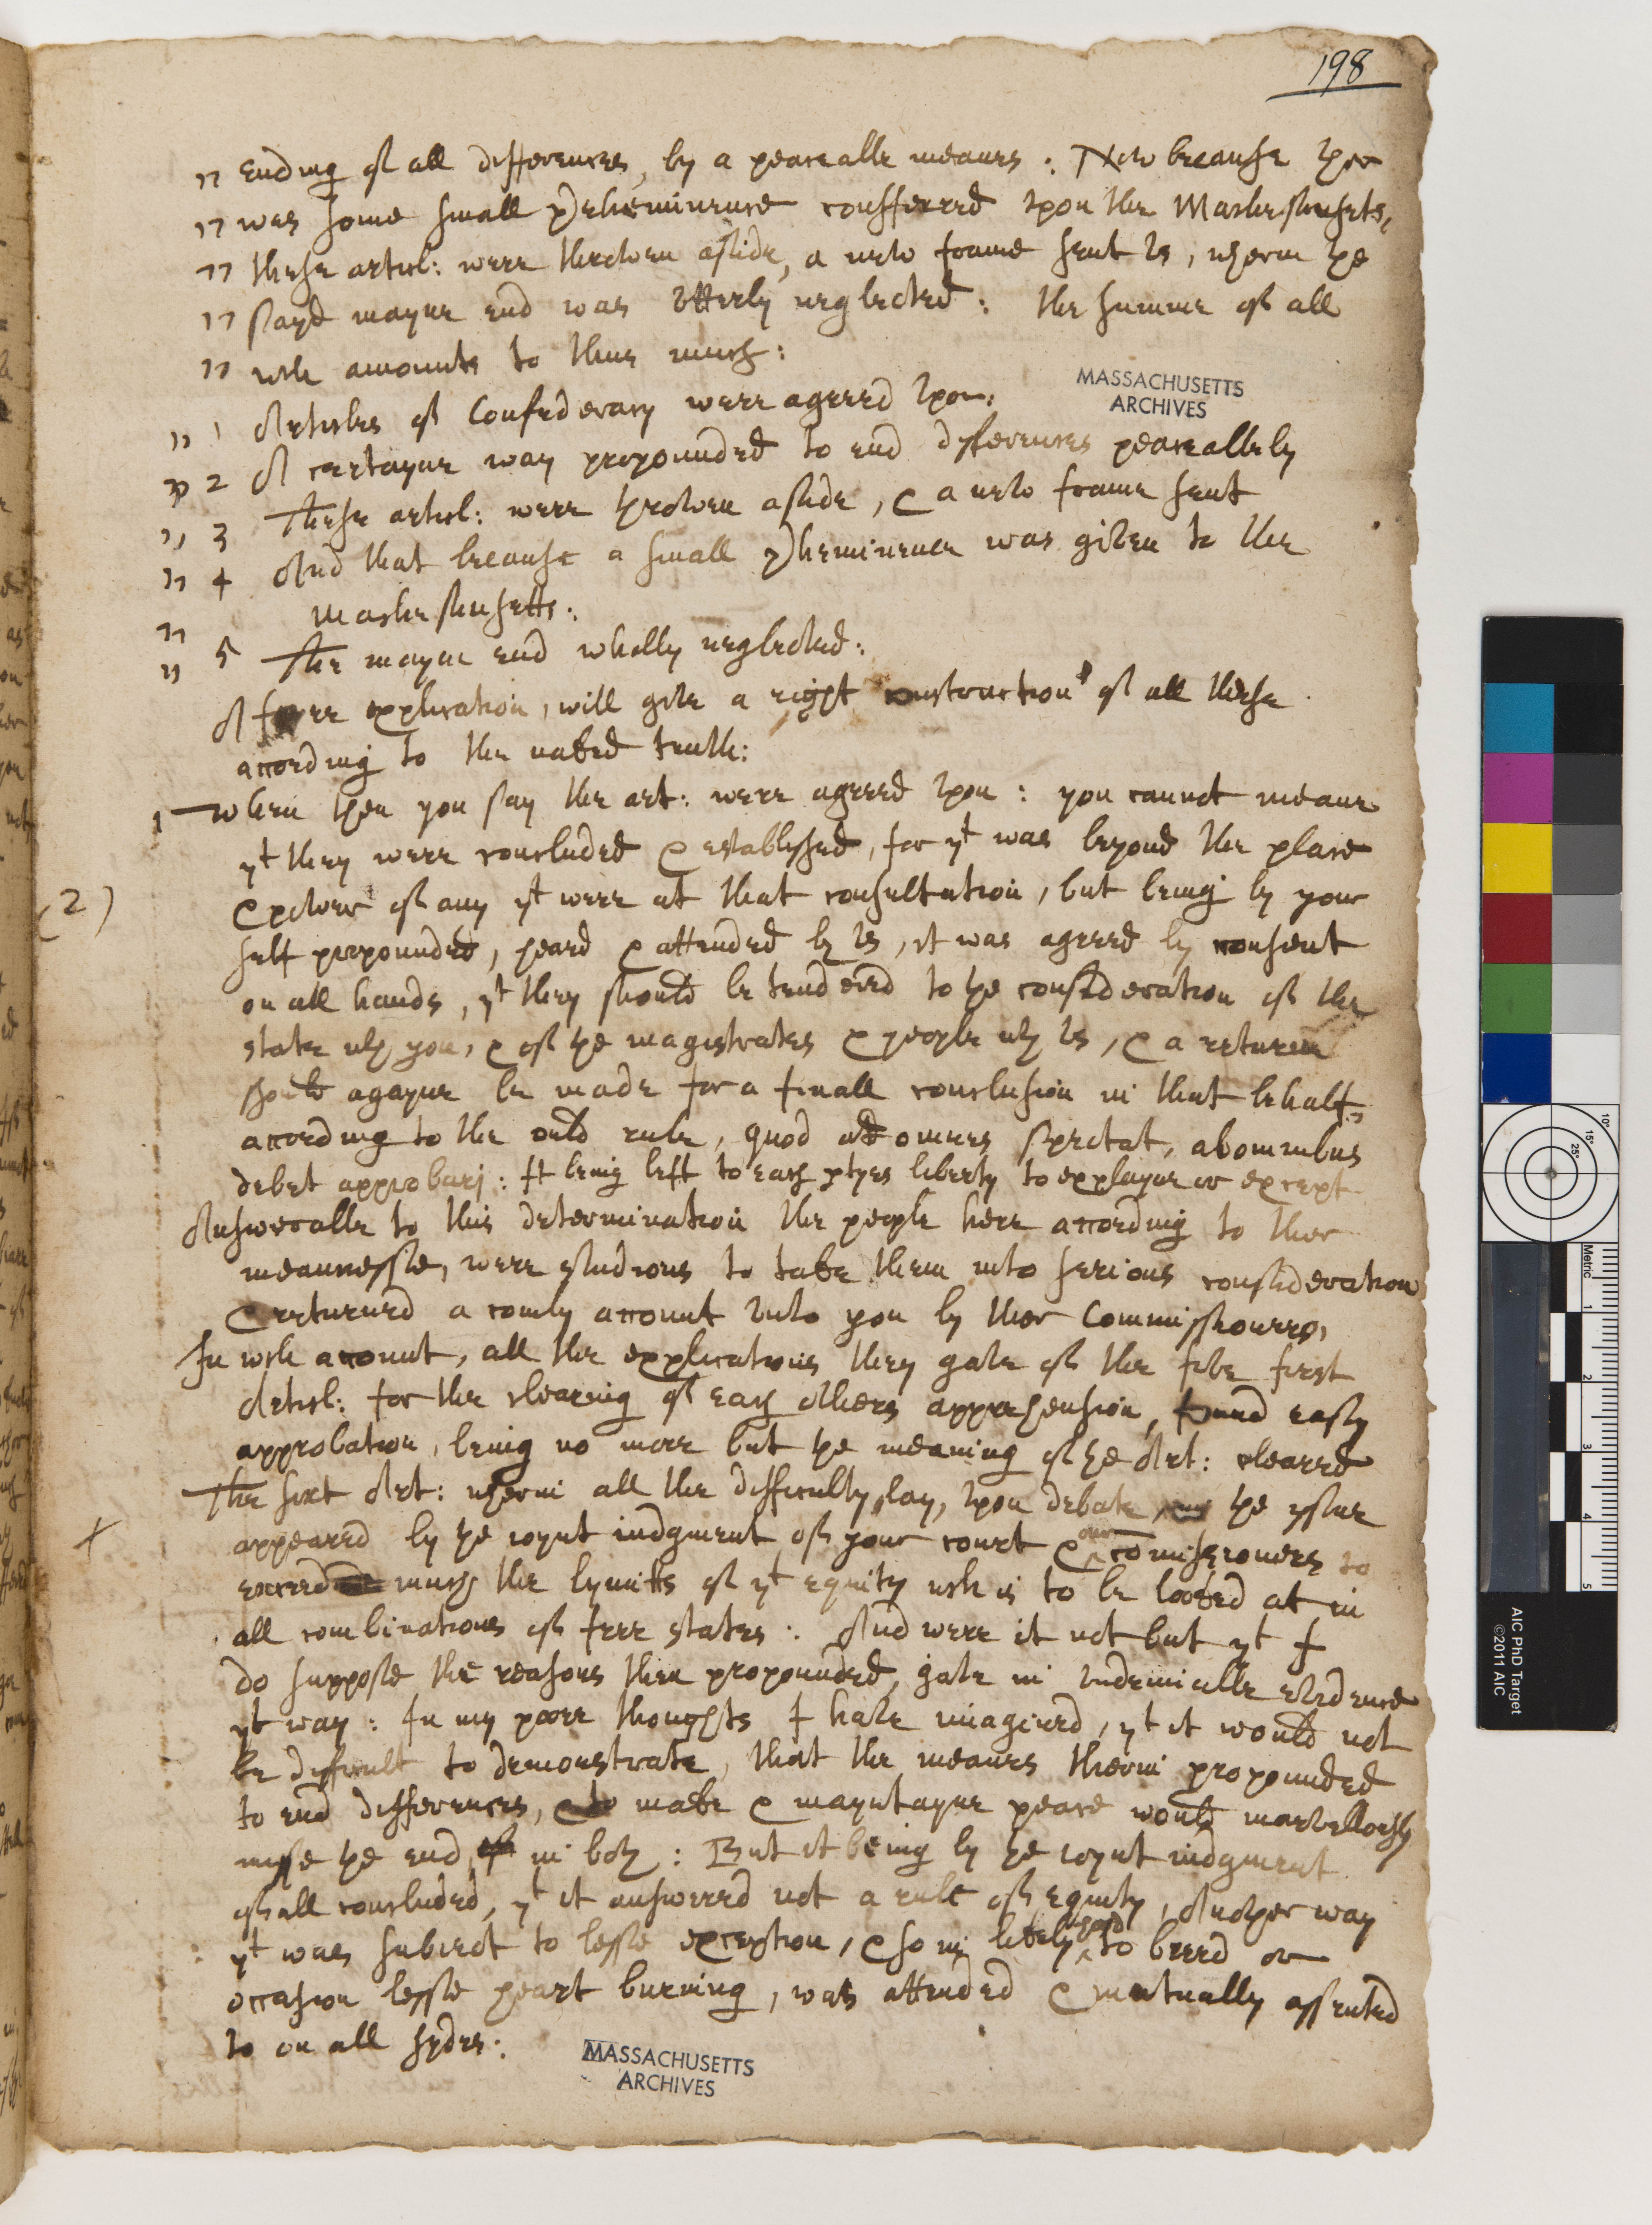 198
" Ending of all differences, by a peaceable meanes : Now because ther
" was some small preheminence conferred upon the Matchesusets,
" these articl: were throwen aside, a new frame sent us, wherin the
" sayd mayne end was utterly neglected : the summe of all
" wch amounts to thus much :
MASSACHUSETTS
ARCHIVES
" 1 Articles of Confederacy were agreed upon,
" 2 A certayne way propounded to end differences peaceablely
" 3 These articl: were throwen aside, & a new frame sent
" 4 And that because a small preheminence was given to the
" Matchesusetts :
" 5 The mayne end wholly neglected :
A free explication, will give a right construction of all these
according to the naked truth :
1 When then you say the art: were agreed upon : you cannot meane
yt they were concluded & established, for yt was beyond the place
(2)
& power of any yt were at that consultation, but being by your
self propounded, heard & attended by us, it was agreed by consent
on all hands, yt they should be tendered to the consideration of the
state wth you, & of the magistrates & people wth us, & a returne
should agayne be made for a finall conclusion in that behalf,
according to the ould rule, quod ad omnes spectat, ab omnibus
debet approbari : It being left to each ptyes liberty to explayne or except
Answerable to this determination the people here according to ther
meannesse, were studious to take them into serious consideration
& returned a comly account unto you by ther Commissioners,
In wch account, all the explications they gave of the five first
Articl: for the clearing of each others apprehension, found easy
approbation, being no more but the meaning of the Art: cleared
The sixt Art: wherin all the difficulty lay, upon debate the issue
x
appeared by the ioynt iudgment of your court & our comissioners to
exceed much the lymitts of yt equity wch is to be looked at in
all combinations of free states : And were it not but yt I
do suppose the reasons then propounded, gave in undeniable evidence
yt way : In my poore thoughts I have imagined, yt it would not
be difficult to demonstrate, that the meanes therin propounded
to end differences, & to make & mayntayne peace would marvellously
misse the end in both : But it being by the ioynt iudgment
of all concluded, yt it answered not a rule of equity, Another way
yt was subiect to lesse exception, & so in likely to breed or
occasion lesse heart burning, was attended & mutually assented
to on all sydes :
MASSACHUSETTS
ARCHIVES
10°
15°
25°
Metric
1
2
3
4
5
AIC PhD Target
©2011 AIC